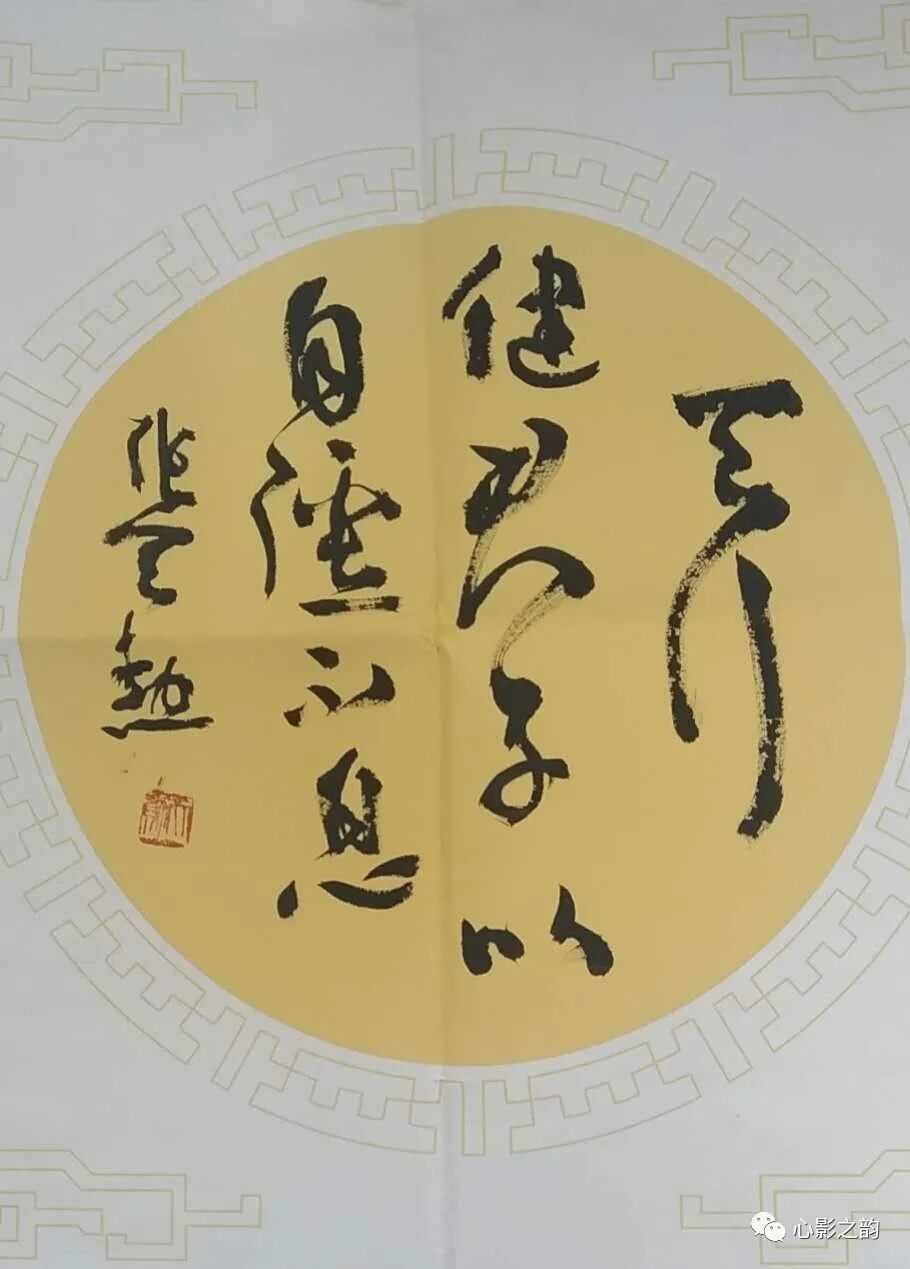 天行
健君子以
自强不息
心影之韵